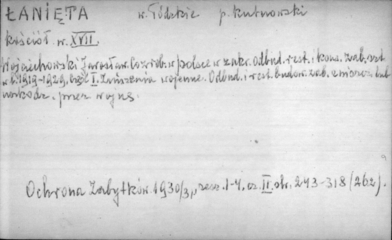 ŁANIĘTA w. Łódzkie p. Kutnowski
Kościół w. XVII.
Wojciechowski Jarosław. Co zrob. w Polsce w zakr. Odbud. rest. i kons. zab. szt.
w l. 1919-1929. część I. Zniszczenia wojenne. Odbud. i rest. budow. zab. zniszcz. lub
uszkodz. przez wojnę.
Ochrona Zabytków. 1930/31, zesz. 1-4, cz. II, str. 243-318 (262).